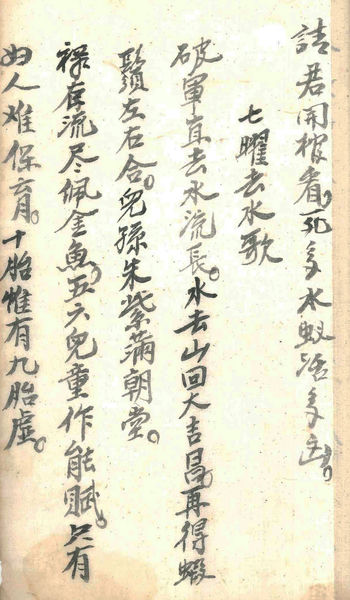 請君開棺看。死多水蚁活多凶。
七曜去水歌
破軍直去水流長。水去山回大吉昌。再得蝦
鬚左右合。兒孫朱紫滿朝堂。
禄存流尽佩金魚。五六兒童作能賦。只有
妇人难保育。十胎惟有九胎虚。